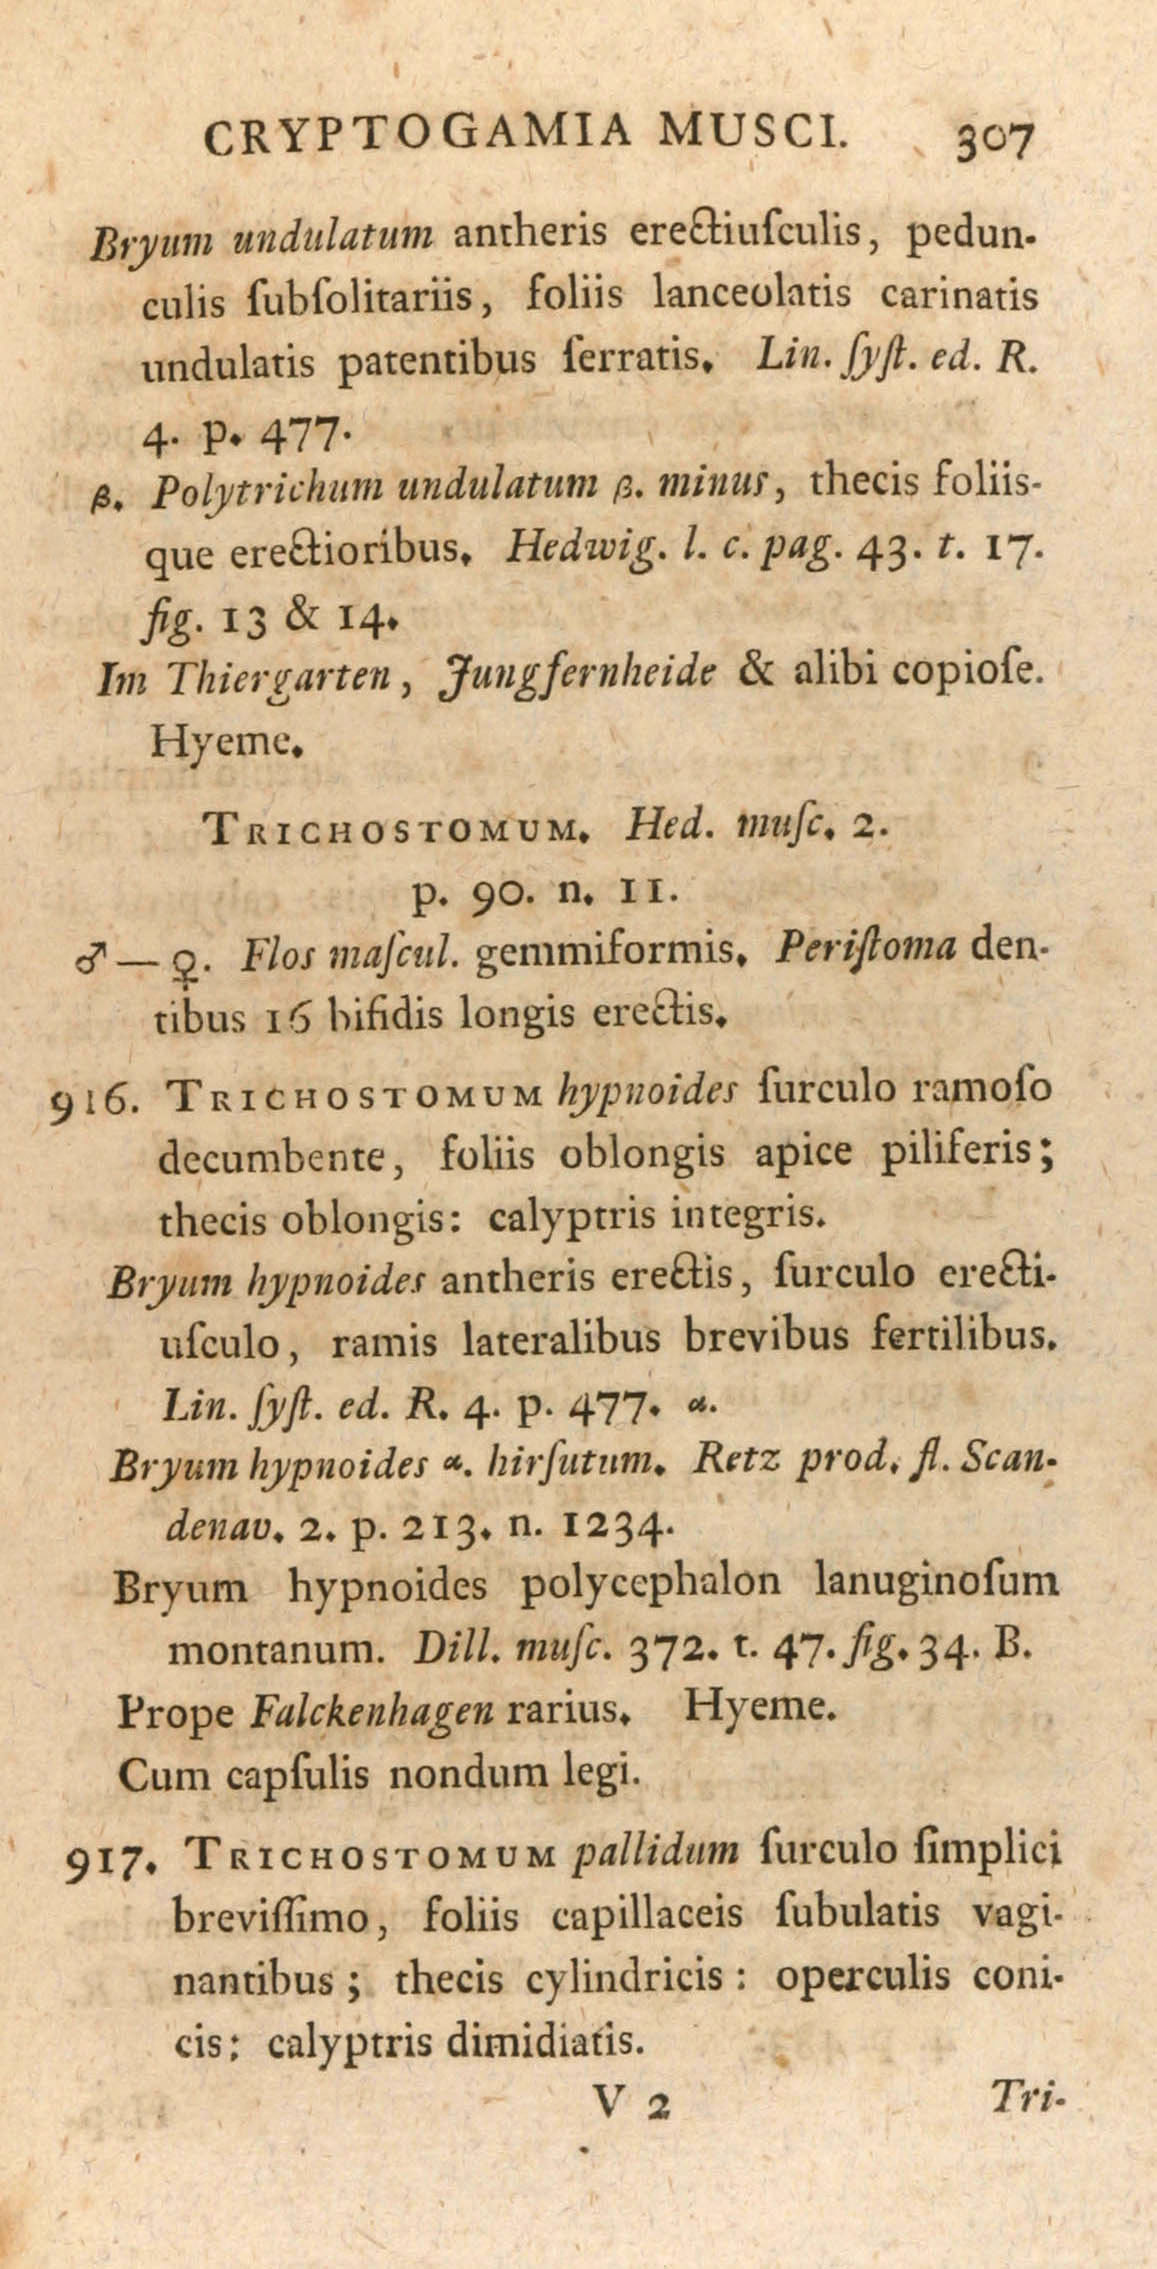 CRYPTOGAMIA MUSCI. 307
Bryum undulatum antheris erectiuſculis, pedun-
culis ſubſolitariis, foliis lanceolatis carinatis
undulatis patentibus ſerratis. Lin. ſyſt. ed. R.
4. p. 477.
β. Polytrichum undulatum β. minus, thecis foliis-
que erectioribus. Hedwig. l. c. pag. 43. t. 17.
fig. 13 & 14.
Im Thiergarten, Jungfernheide & alibi copioſe.
Hyeme.
TRICHOSTOMUM. Hed. muſc. 2.
p. 90. n. 11.
♂ — ♀. Flos maſcul. gemmiformis. Periſtoma den-
tibus 16 bifidis longis erectis.
916. TRICHOSTOMUM hypnoides ſurculo ramoſo
decumbente, foliis oblongis apice piliferis;
thecis oblongis: calyptris integris.
Bryum hypnoides antheris erectis, ſurculo erecti-
uſculo, ramis lateralibus brevibus fertilibus.
Lin. ſyſt. ed. R. 4. p. 477. α.
Bryum hypnoides α. hirſutum. Retz prod. fl. Scan-
denav. 2. p. 213. n. 1234.
Bryum hypnoides polycephalon lanuginoſum
montanum. Dill. muſc. 372. t. 47. fig. 34. B.
Prope Falckenhagen rarius. Hyeme.
Cum capſulis nondum legi.
917. TRICHOSTOMUM pallidum ſurculo ſimplici
breviſſimo, foliis capillaceis ſubulatis vagi-
nantibus; thecis cylindricis: operculis coni-
cis: calyptris dimidiatis.
V 2 Tri-